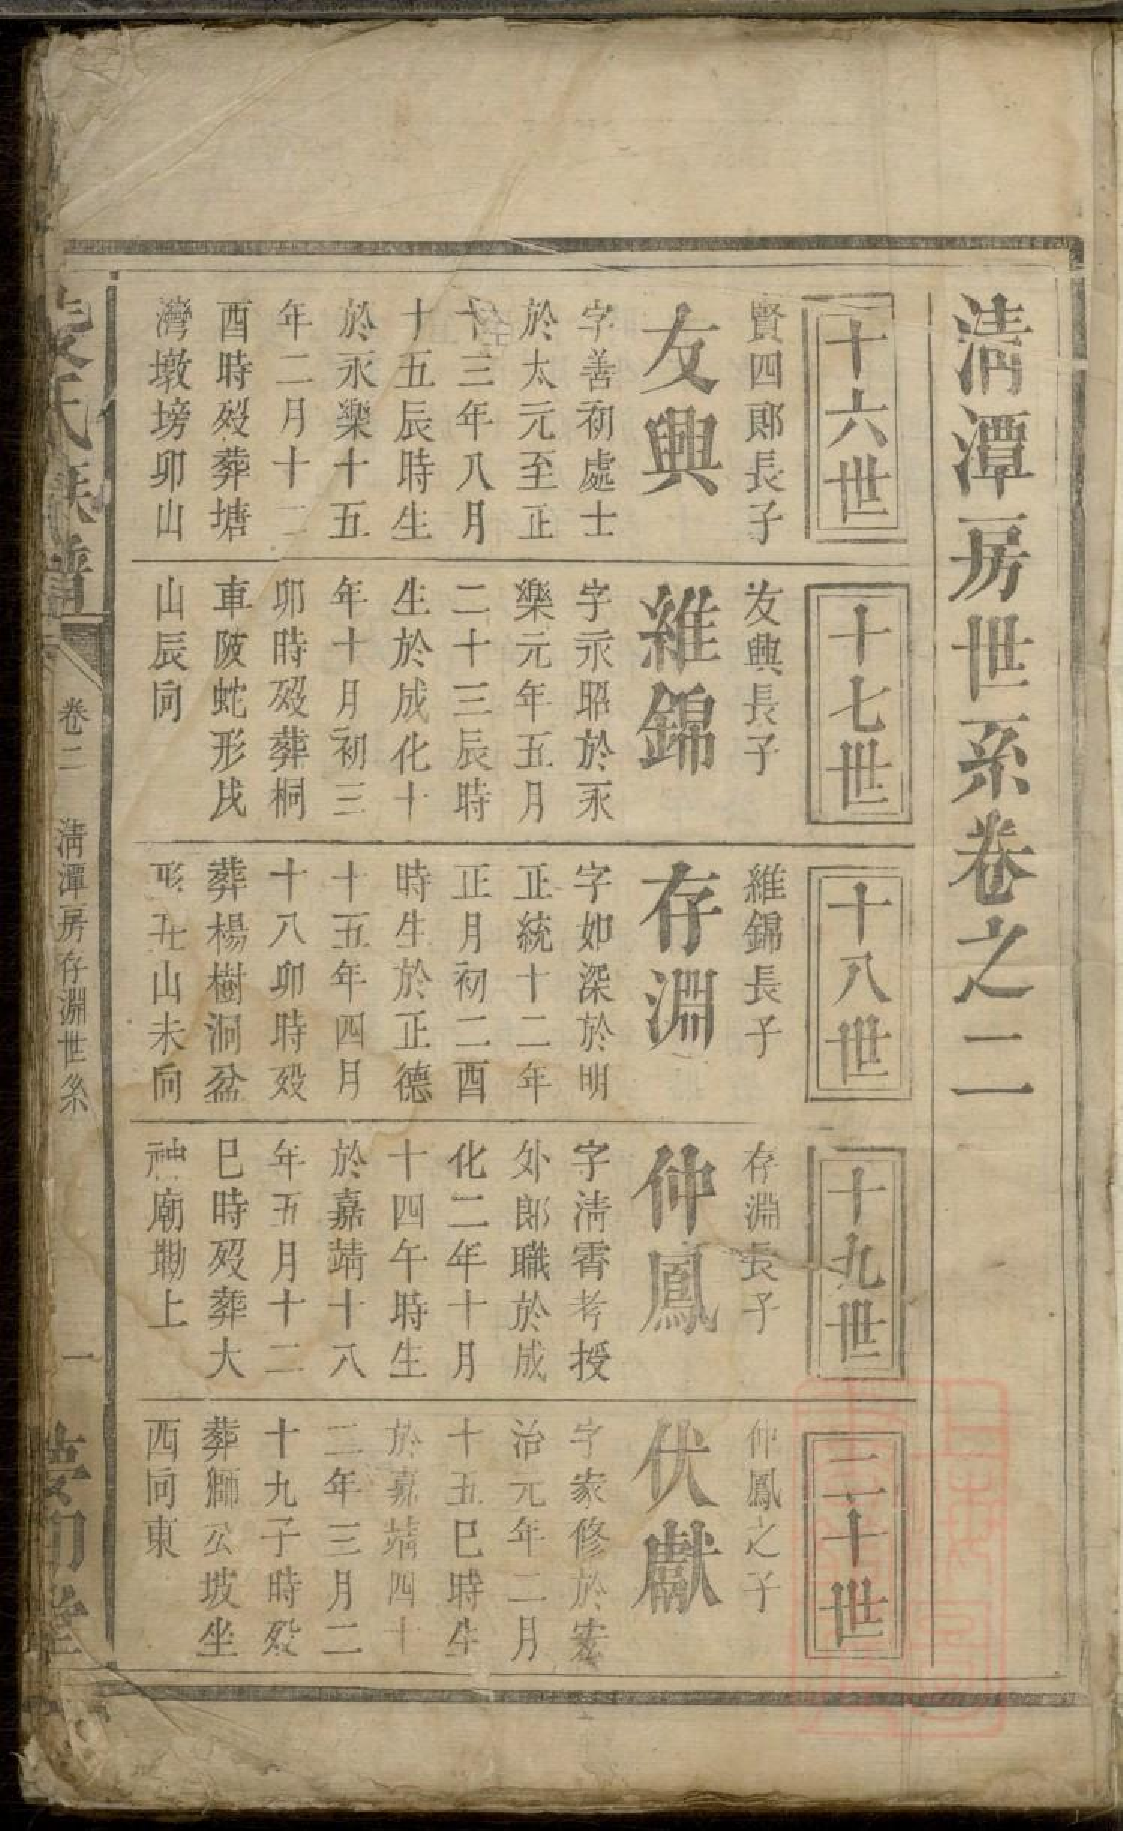 清潭房世系卷之二
十六世
賢四郎長子
友興
字善初處士
於太元至正
十三年八月
十五辰時生
於永樂十五
年二月十二
酉時歿葬塘
灣墩塝卯山
十七世
友興長子
維錦
字永昭於永
樂元年五月
二十三辰時
生於成化十
年十月初三
卯時歿葬桐
車陂蛇形戌
山辰向
十八世
維錦長子
存淵
字如深於明
正統十二年
正月初二酉
時生於正德
十五年四月
十八卯時歿
葬楊樹洞盆
形丑山未向
十九世
存淵長子
仲鳳
字清霄考授
外郎職於成
化二年十月
十四午時生
於嘉靖十八
年五月十二
巳時歿葬大
神廟勘上
二十世
仲鳳之子
伏獻
字家修於宏
治元年二月
十五巳時生
於嘉靖四十
二年三月二
十九子時歿
葬獅公坡坐
西向東
氏族譜
卷二
清潭房存淵世系
一